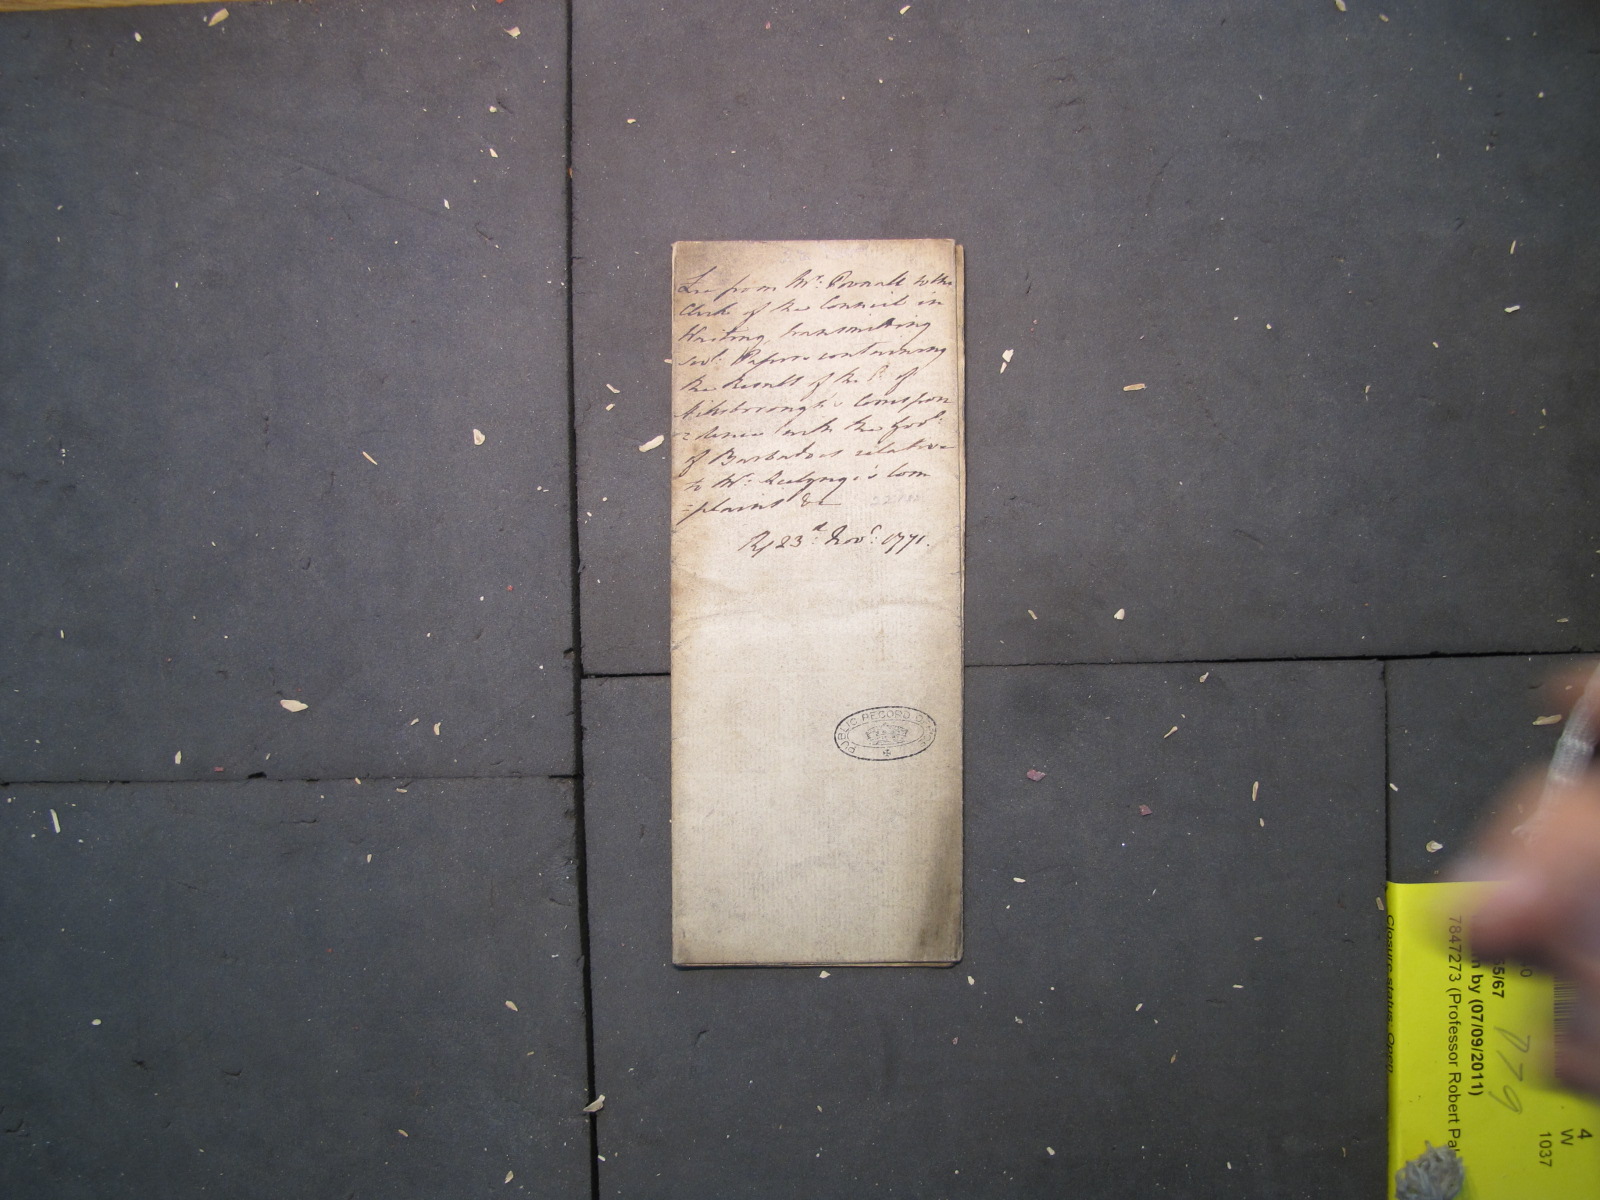 Lre from Mr. Pownall to the
Clerk of the Council in
Waiting, transmitting
sevl. Papers containing
the Result of the E. of
Hillsborough's Correspon
=dence with the Govr.
of Barbados relative
to Mr. Com
=plaint &c
R/ 23d. Novr. 1771.
PUBLIC RECORD OFFICE
55/67
by (07/09/2011)
7847273 (Professor Robert Pal
Closure status Open
779
4
W
1037